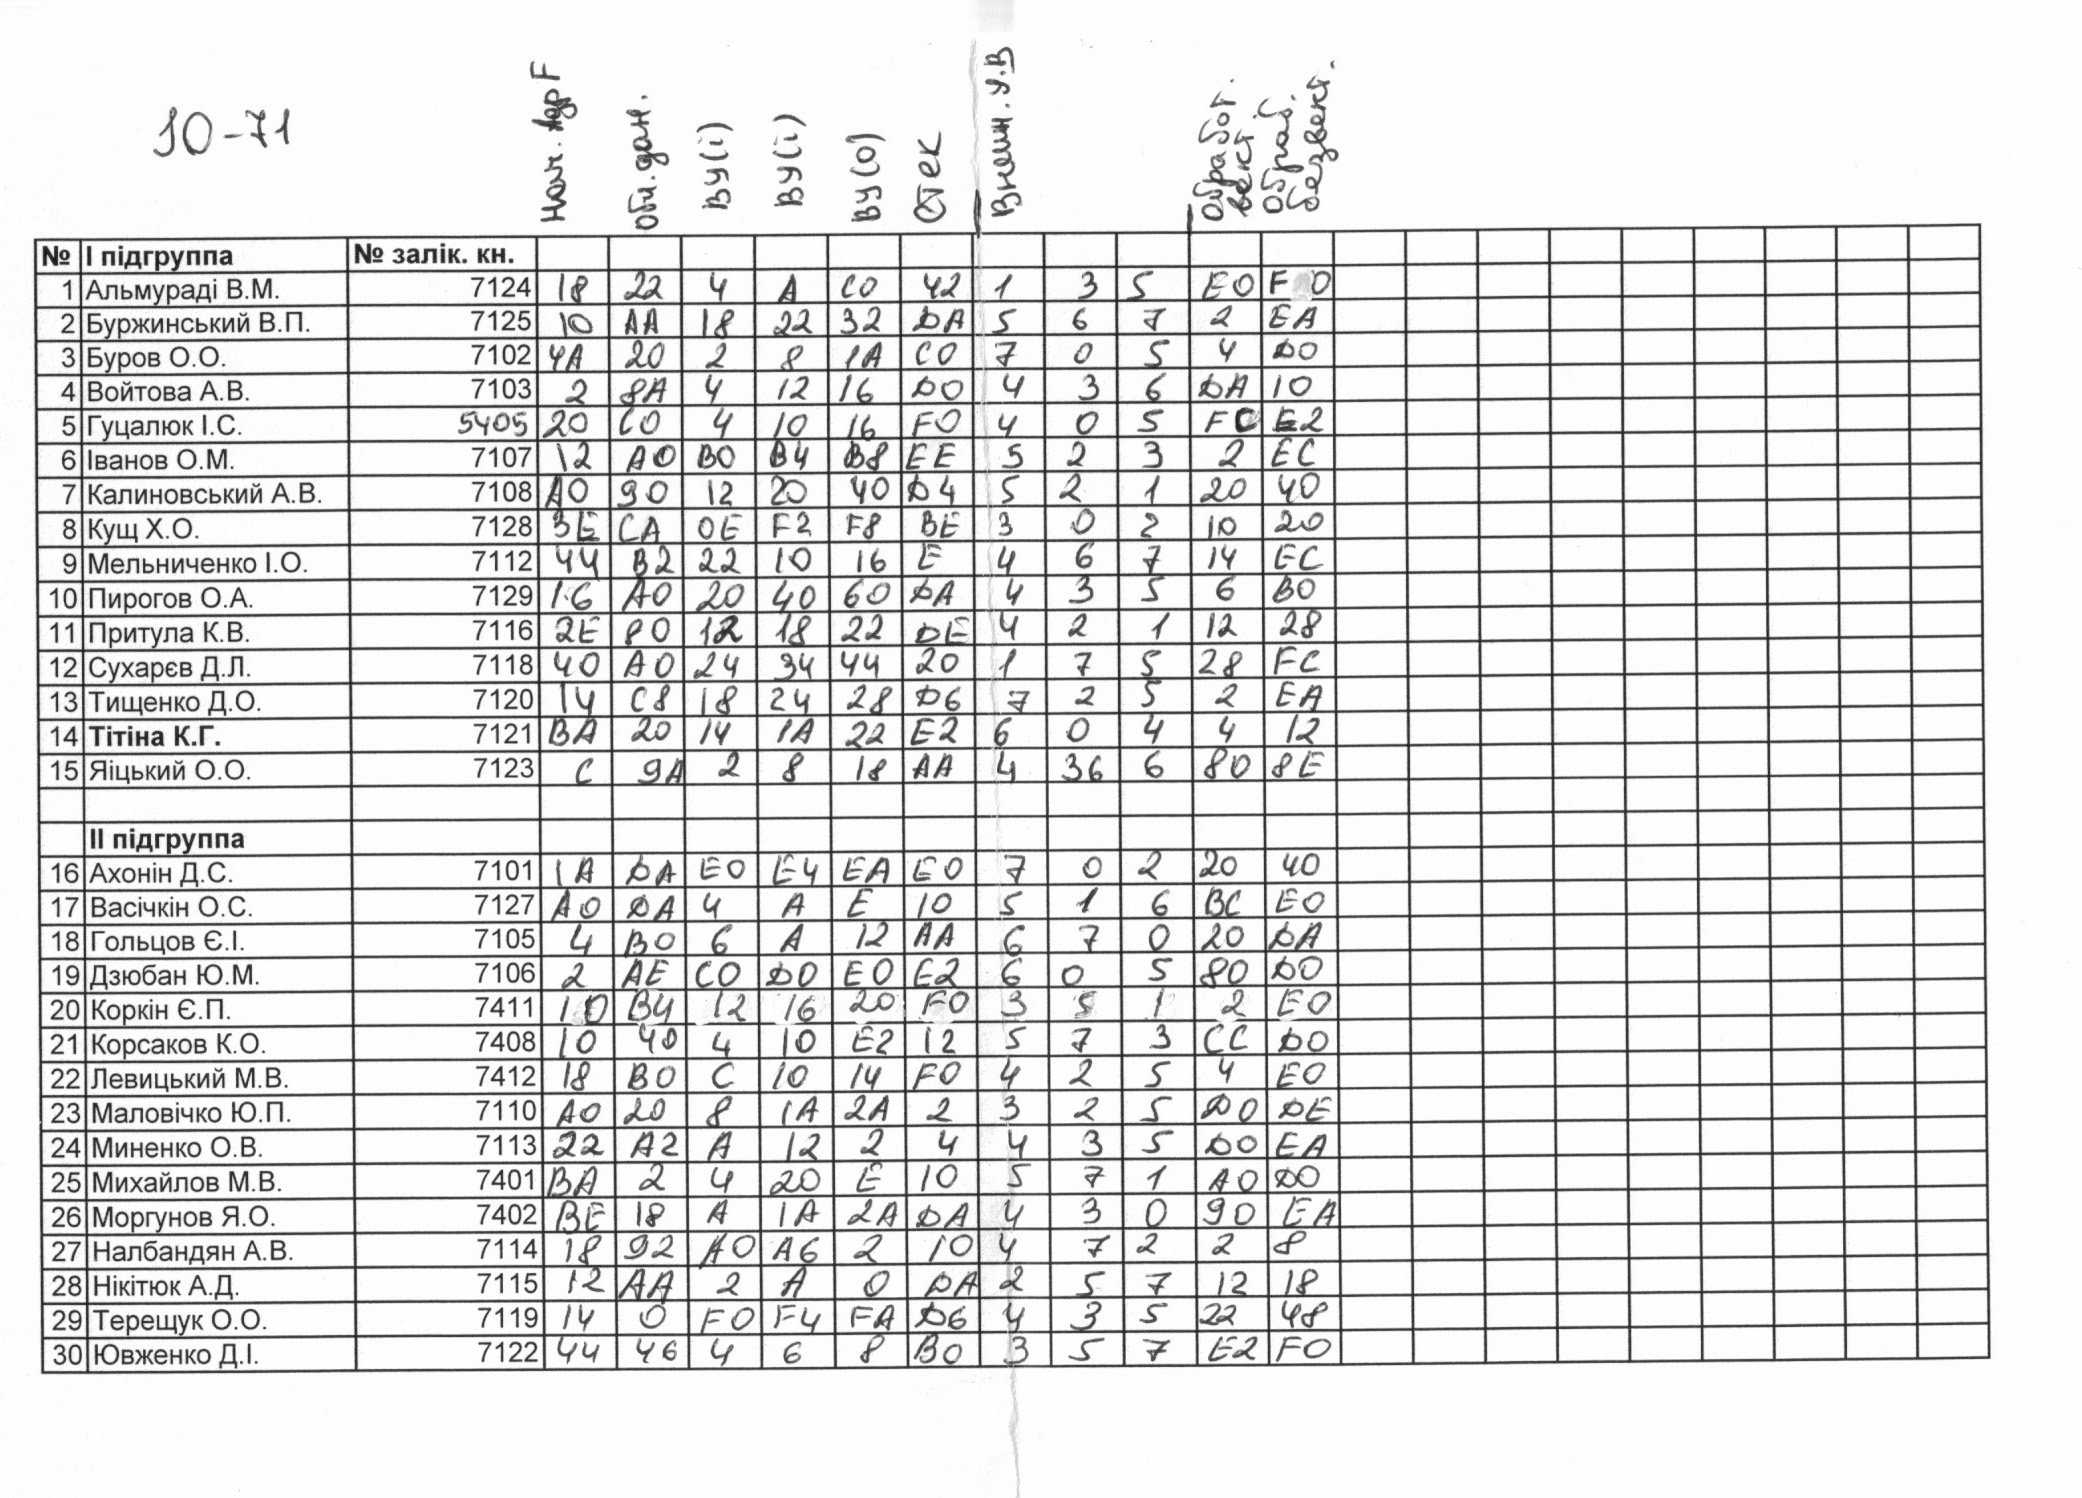 ІО-71
Нач. Адр F
Общ. дан.
ВУ(i)
ВУ(i)
ВУ(о)
Стек
Внешн. У.В
Обработ. вект.
Обраб. безвект.
№ І підгруппа № залік. кн.
1 Альмураді В.М. 7124 18 22 4 A C0 42 1 3 5 E0 F0
2 Буржинський В.П. 7125 10 AA 18 22 32 DA 5 6 7 2 EA
3 Буров О.О. 7102 4A 20 2 8 1A C0 7 0 5 4 D0
4 Войтова А.В. 7103 2 8A 4 12 16 D0 4 3 6 DA 10
5 Гуцалюк І.С. 5405 20 C0 4 10 16 F0 4 0 5 FC E2
6 Іванов О.М. 7107 12 A0 B0 B4 B8 EE 5 2 3 2 EC
7 Калиновський А.В. 7108 A0 90 12 20 40 D4 5 2 1 20 40
8 Кущ Х.О. 7128 3E CA 0E F2 F8 BE 3 0 2 10 20
9 Мельниченко І.О. 7112 44 B2 22 10 16 E 4 6 7 14 EC
10 Пирогов О.А. 7129 16 A0 20 40 60 DA 4 3 5 6 B0
11 Притула К.В. 7116 2E 80 12 18 22 DE 4 2 1 12 28
12 Сухарєв Д.Л. 7118 40 A0 24 34 44 20 1 7 5 28 FC
13 Тищенко Д.О. 7120 14 C8 18 24 28 D6 7 2 5 2 EA
14 Тітіна К.Г. 7121 BA 20 14 1A 22 E2 6 0 4 4 12
15 Яіцький О.О. 7123 C 9A 2 8 18 AA 4 36 6 80 8E
ІІ підгруппа
16 Ахонін Д.С. 7101 1A DA E0 E4 EA E0 7 0 2 20 40
17 Васічкін О.С. 7127 A0 DA 4 A E 10 5 1 6 BC E0
18 Гольцов Є.І. 7105 4 B0 6 A 12 AA 6 7 0 20 DA
19 Дзюбан Ю.М. 7106 2 AE C0 D0 E0 E2 6 0 5 80 D0
20 Коркін Є.П. 7411 10 B4 12 16 20 F0 3 5 1 2 E0
21 Корсаков К.О. 7408 10 40 4 10 E2 12 5 7 3 CC D0
22 Левицький М.В. 7412 18 B0 C 10 14 F0 4 2 5 4 E0
23 Маловічко Ю.П. 7110 A0 20 8 1A 2A 2 3 2 5 D0 DE
24 Миненко О.В. 7113 22 A2 A 12 2 4 4 3 5 D0 EA
25 Михайлов М.В. 7401 BA 2 4 20 E 10 5 7 1 A0 D0
26 Моргунов Я.О. 7402 BE 18 A 1A 2A DA 4 3 0 90 EA
27 Налбандян А.В. 7114 18 92 A0 A6 2 10 4 7 2 2 8
28 Нікітюк А.Д. 7115 12 AA 2 A 0 DA 2 5 7 12 18
29 Терещук О.О. 7119 14 0 F0 F4 FA D6 4 3 5 22 48
30 Ювженко Д.І. 7122 44 46 4 6 8 B0 3 5 7 E2 F0